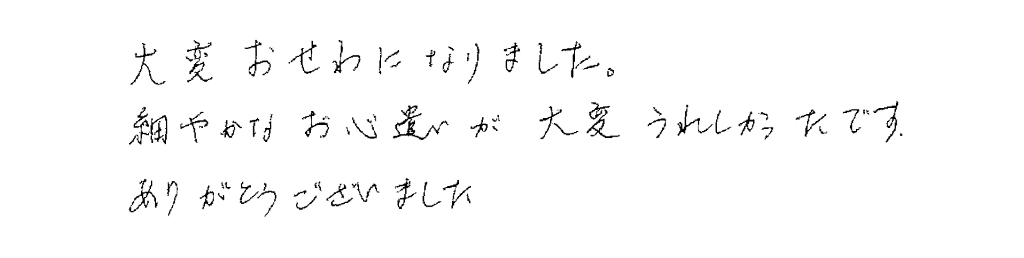 大変おせわになりました。
細やかなお心遣いが大変うれしかったです.
ありがとうございました